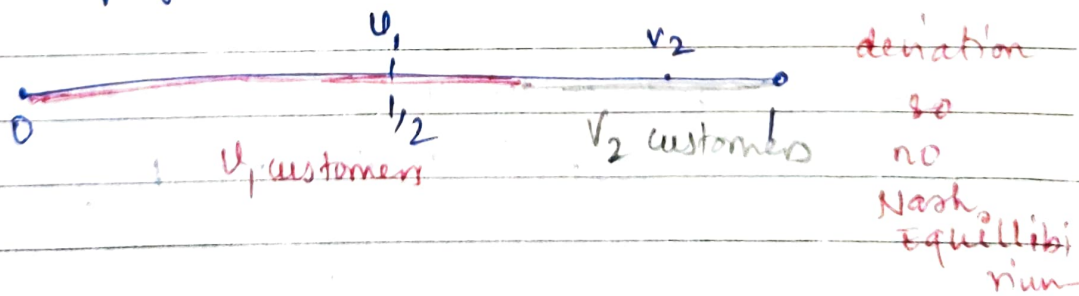 V1
V2
deviation
0
1/2
1
V1 customers
V2 customers
so
no
Nash
Equillibi
rium